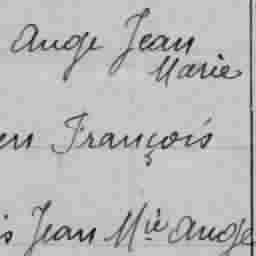 Ange Jean
Marie
en François
s Jean Mie Ange